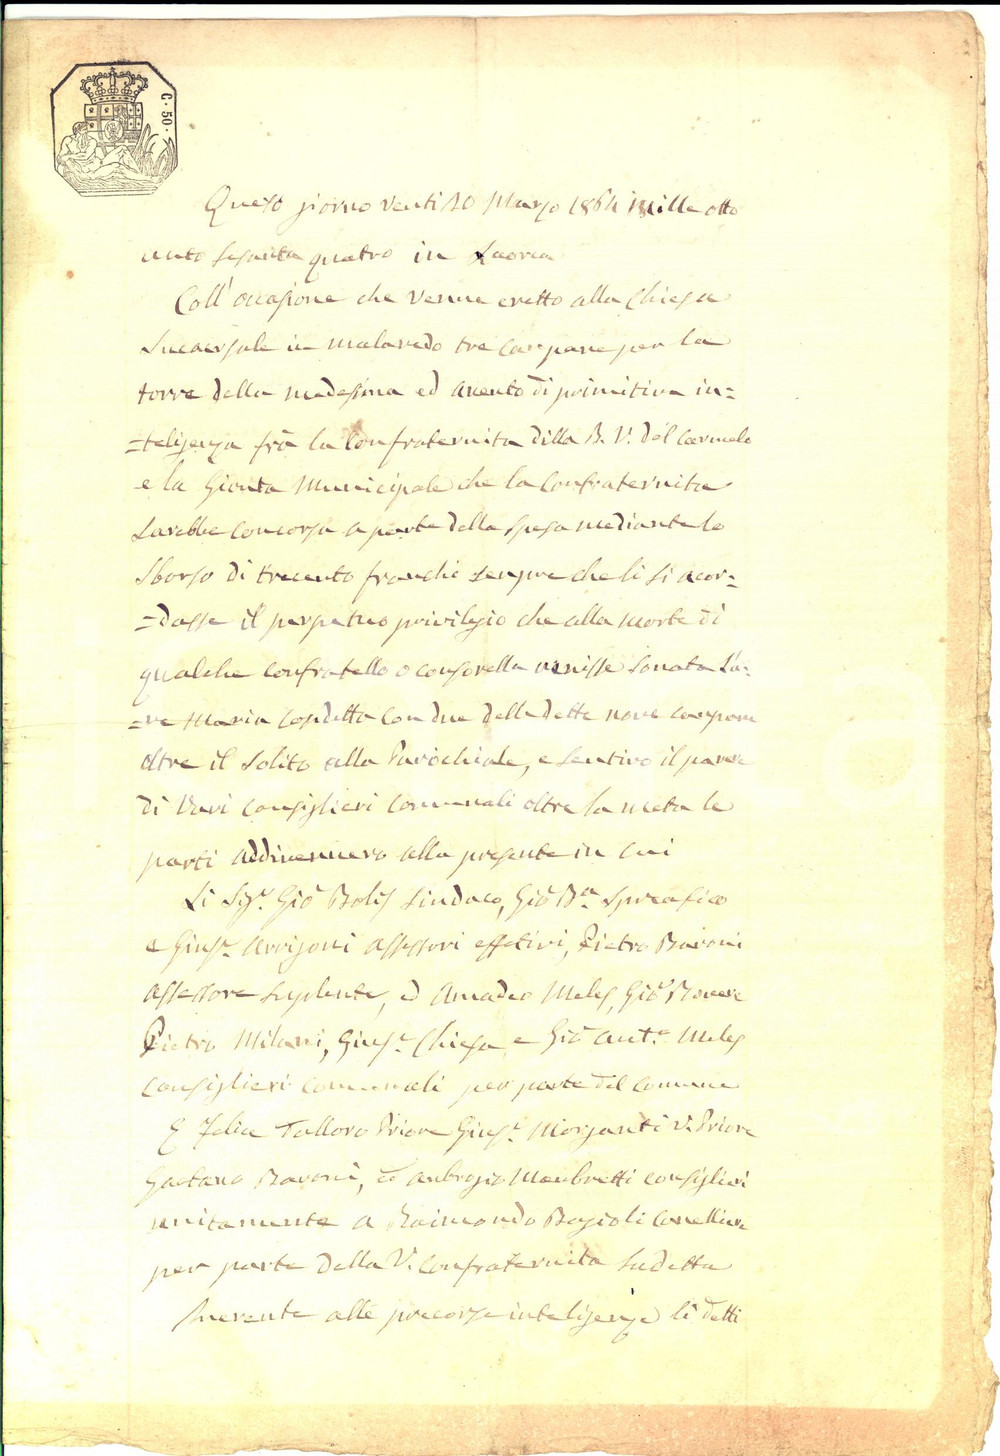 C. 50.
Questo giorno venti 20 Marzo 1864 mille otto
cento sesanta quatro in Laorca
Coll' ocasione che venne eretto alla Chiesa
Sucursale in Malavedo tre campane per la
torre della medesima ed avento di primitiva in=
=teligenza frà la Confraternita della B. V. del Carmelo
e la Gionta Municipale che la Confraternita
sarebbe concorsa a parte della spesa mediante lo
sborso di trecento franchi sempre che li si acor=
=dasse il perpetuo privilegio che alla morte di
qualche confratello o consorella venisse sonata l'a=
=ve Maria cosidetta con due delle dette nove campane
oltre il solito alla Parochiale, e sentivo il parere
di vari consiglieri comunali oltre la metà le
parti addivennero alla presente in cui
Li Sig.r Gio Bolis Sindaco, Gio B.a Spreafico
e Gius.e Arrigoni assessori effetivi, Pietro Baroni
assessore suplente, ed Amadeo Meles, Gio Rovere
Pietro Milani, Gius.e Chiesa e Gio Ant.o Meles
consiglieri comunali per parte del comune
E Felice Talloro Priore Gius.e Morganti V. Priore
Gaetano Baroni, ed Ambrogio Mambretti consiglieri
unitamente a Raimondo Bagioli Cancelliere
per parte della V. Confraternita sudetta
Inerente alle precorse inteligenze li detti